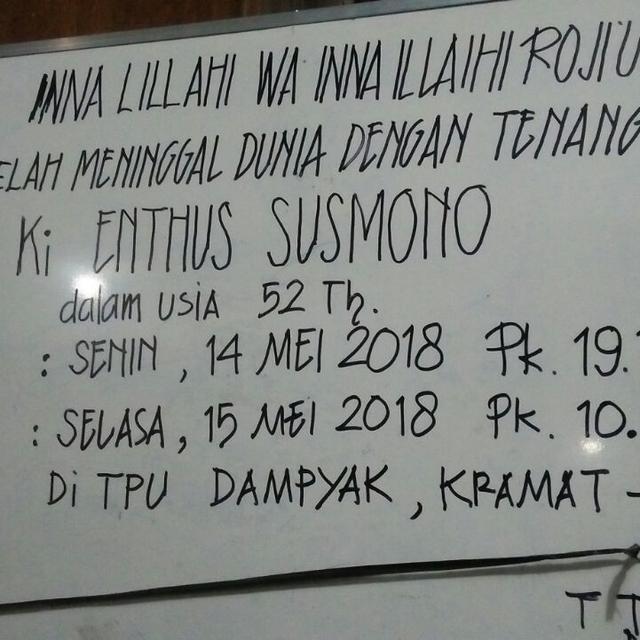 INNA LILLAHI WA INNA ILLAIHI ROJI'U
ELAH MENINGGAL DUNIA DENGAN TENANG
Ki ENTHUS SUSMONO
dalam usia 52 Th.
: SENIN , 14 MEI 2018 Pk. 19.
: SELASA , 15 MEI 2018 Pk. 10.
Di TPU DAMPYAK , KRAMAT -